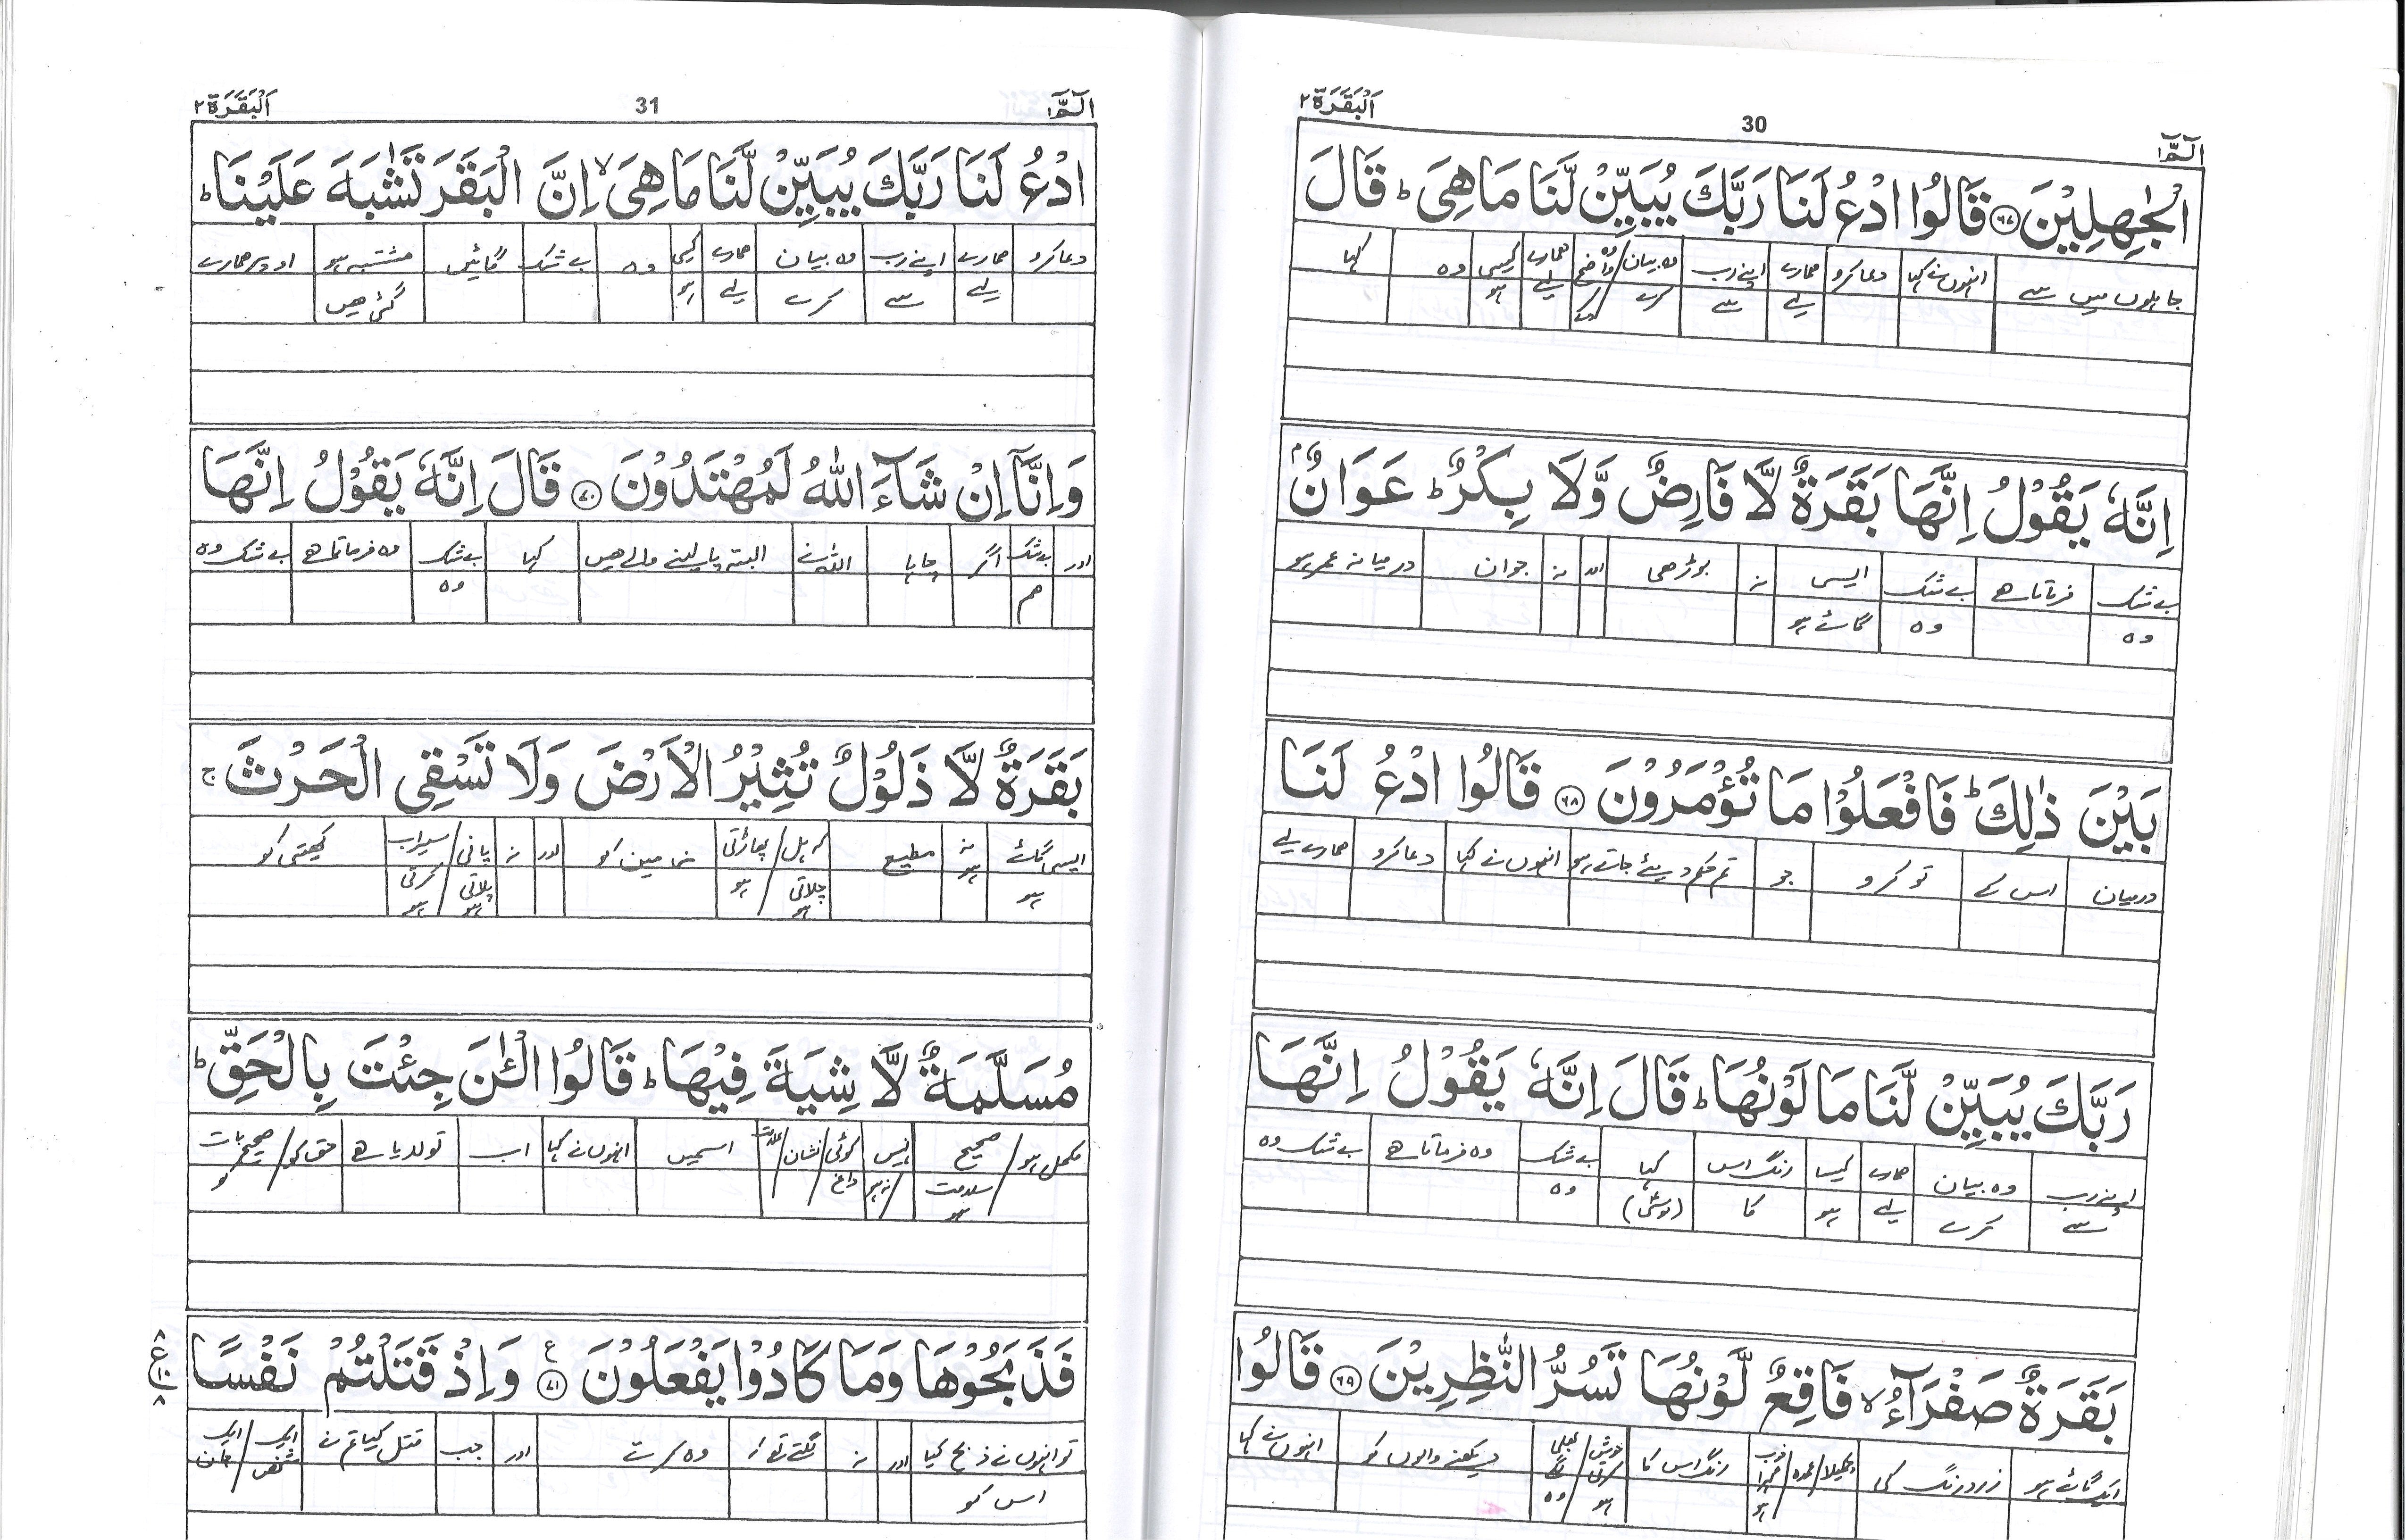 الٓمّٓ ۱ 30 اَلْبَقَرَة ۲
الْجٰهِلِيْنَ ۝۶۷ قَالُوا ادْعُ لَنَا رَبَّكَ يُبَيِّنْ لَّنَا مَا هِىَ ؕ قَالَ
جاہلوں میں سے انہوں نے کہا دعا کرو ہمارے اپنے رب وہ بیان/واضح ہمارے کیسی وہ کہا
لیے سے کرے/ لیے ہو
اِنَّهٗ يَقُوْلُ اِنَّهَا بَقَرَةٌ لَّا فَارِضٌ وَّلَا بِكْرٌ ؕ عَوَانٌۢ
بے شک فرماتا ہے بے شک ایسی نہ بوڑھی اور نہ جوان درمیانہ عمر ہو
وہ وہ گائے ہو
بَيْنَ ذٰلِكَ ؕ فَافْعَلُوْا مَا تُؤْمَرُوْنَ ۝۶۸ قَالُوا ادْعُ لَنَا
درمیان اس کے تو کرو جو تم حکم دیئے جاتے ہو انہوں نے کہا دعا کرو ہمارے لیے
رَبَّكَ يُبَيِّنْ لَّنَا مَا لَوْنُهَا ؕ قَالَ اِنَّهٗ يَقُوْلُ اِنَّهَا
اپنے رب وہ بیان ہمارے کیسا رنگ اس کہا بے شک وہ فرماتا ہے بے شک وہ
سے کرے لیے ہو کا (موسیٰ) وہ
بَقَرَةٌ صَفْرَآءُ ۙ فَاقِعٌ لَّوْنُهَا تَسُرُّ النّٰظِرِيْنَ ۝۶۹ قَالُوا
ایک گائے ہو زرد رنگ کی چمکیلا/عمدہ خوب رنگ اس کا خوش/بھلی دیکھنے والوں کو انہوں نے کہا
گہرا ہو کرتی ہو/لگے وہ
الٓمّٓ ۱ 31 اَلْبَقَرَة ۲
ادْعُ لَنَا رَبَّكَ يُبَيِّنْ لَّنَا مَا هِىَ ۙ اِنَّ الْبَقَرَ تَشٰبَهَ عَلَيْنَا ؕ
دعا کرو ہمارے اپنے رب وہ بیان ہمارے کیسی وہ بے شک گائیں مشتبہ ہو اوپر ہمارے
لیے سے کرے لیے ہو گئی ہیں
وَاِنَّاۤ اِنْ شَآءَ اللّٰهُ لَمُهْتَدُوْنَ ۝۷۰ قَالَ اِنَّهٗ يَقُوْلُ اِنَّهَا
اور بے شک اگر چاہا اللہ نے البتہ پا لینے والے ہیں کہا بے شک وہ فرماتا ہے بے شک وہ
ہم وہ
بَقَرَةٌ لَّا ذَلُوْلٌ تُثِيْرُ الْاَرْضَ وَلَا تَسْقِى الْحَرْثَ ۚ
ایسی گائے نہ مطیع کہ ہل/پھاڑتی زمین کو اور نہ پانی/سیراب کھیتی کو
ہو ہو چلاتی ہو/ہو پلاتی ہو/کرتی ہو
مُسَلَّمَةٌ لَّا شِيَةَ فِيْهَا ؕ قَالُوا الْـٰٔنَ جِئْتَ بِالْحَقِّ ؕ
مکمل ہو/صحیح نہیں کوئی/نشان/علامت اسمیں انہوں نے کہا اب تو لایا ہے حق کو/صحیح بات
سلامت ہو نہ ہو داغ کو
فَذَبَحُوْهَا وَمَا كَادُوْا يَفْعَلُوْنَ ۝۷۱ ع وَاِذْ قَتَلْتُمْ نَفْسًا
۸ ع ۱۰ ۸
تو انہوں نے ذبح کیا اور نہ لگتے تھے کہ وہ کرتے اور جب قتل کیا تم نے ایک شخص/ایک جان
اس کو